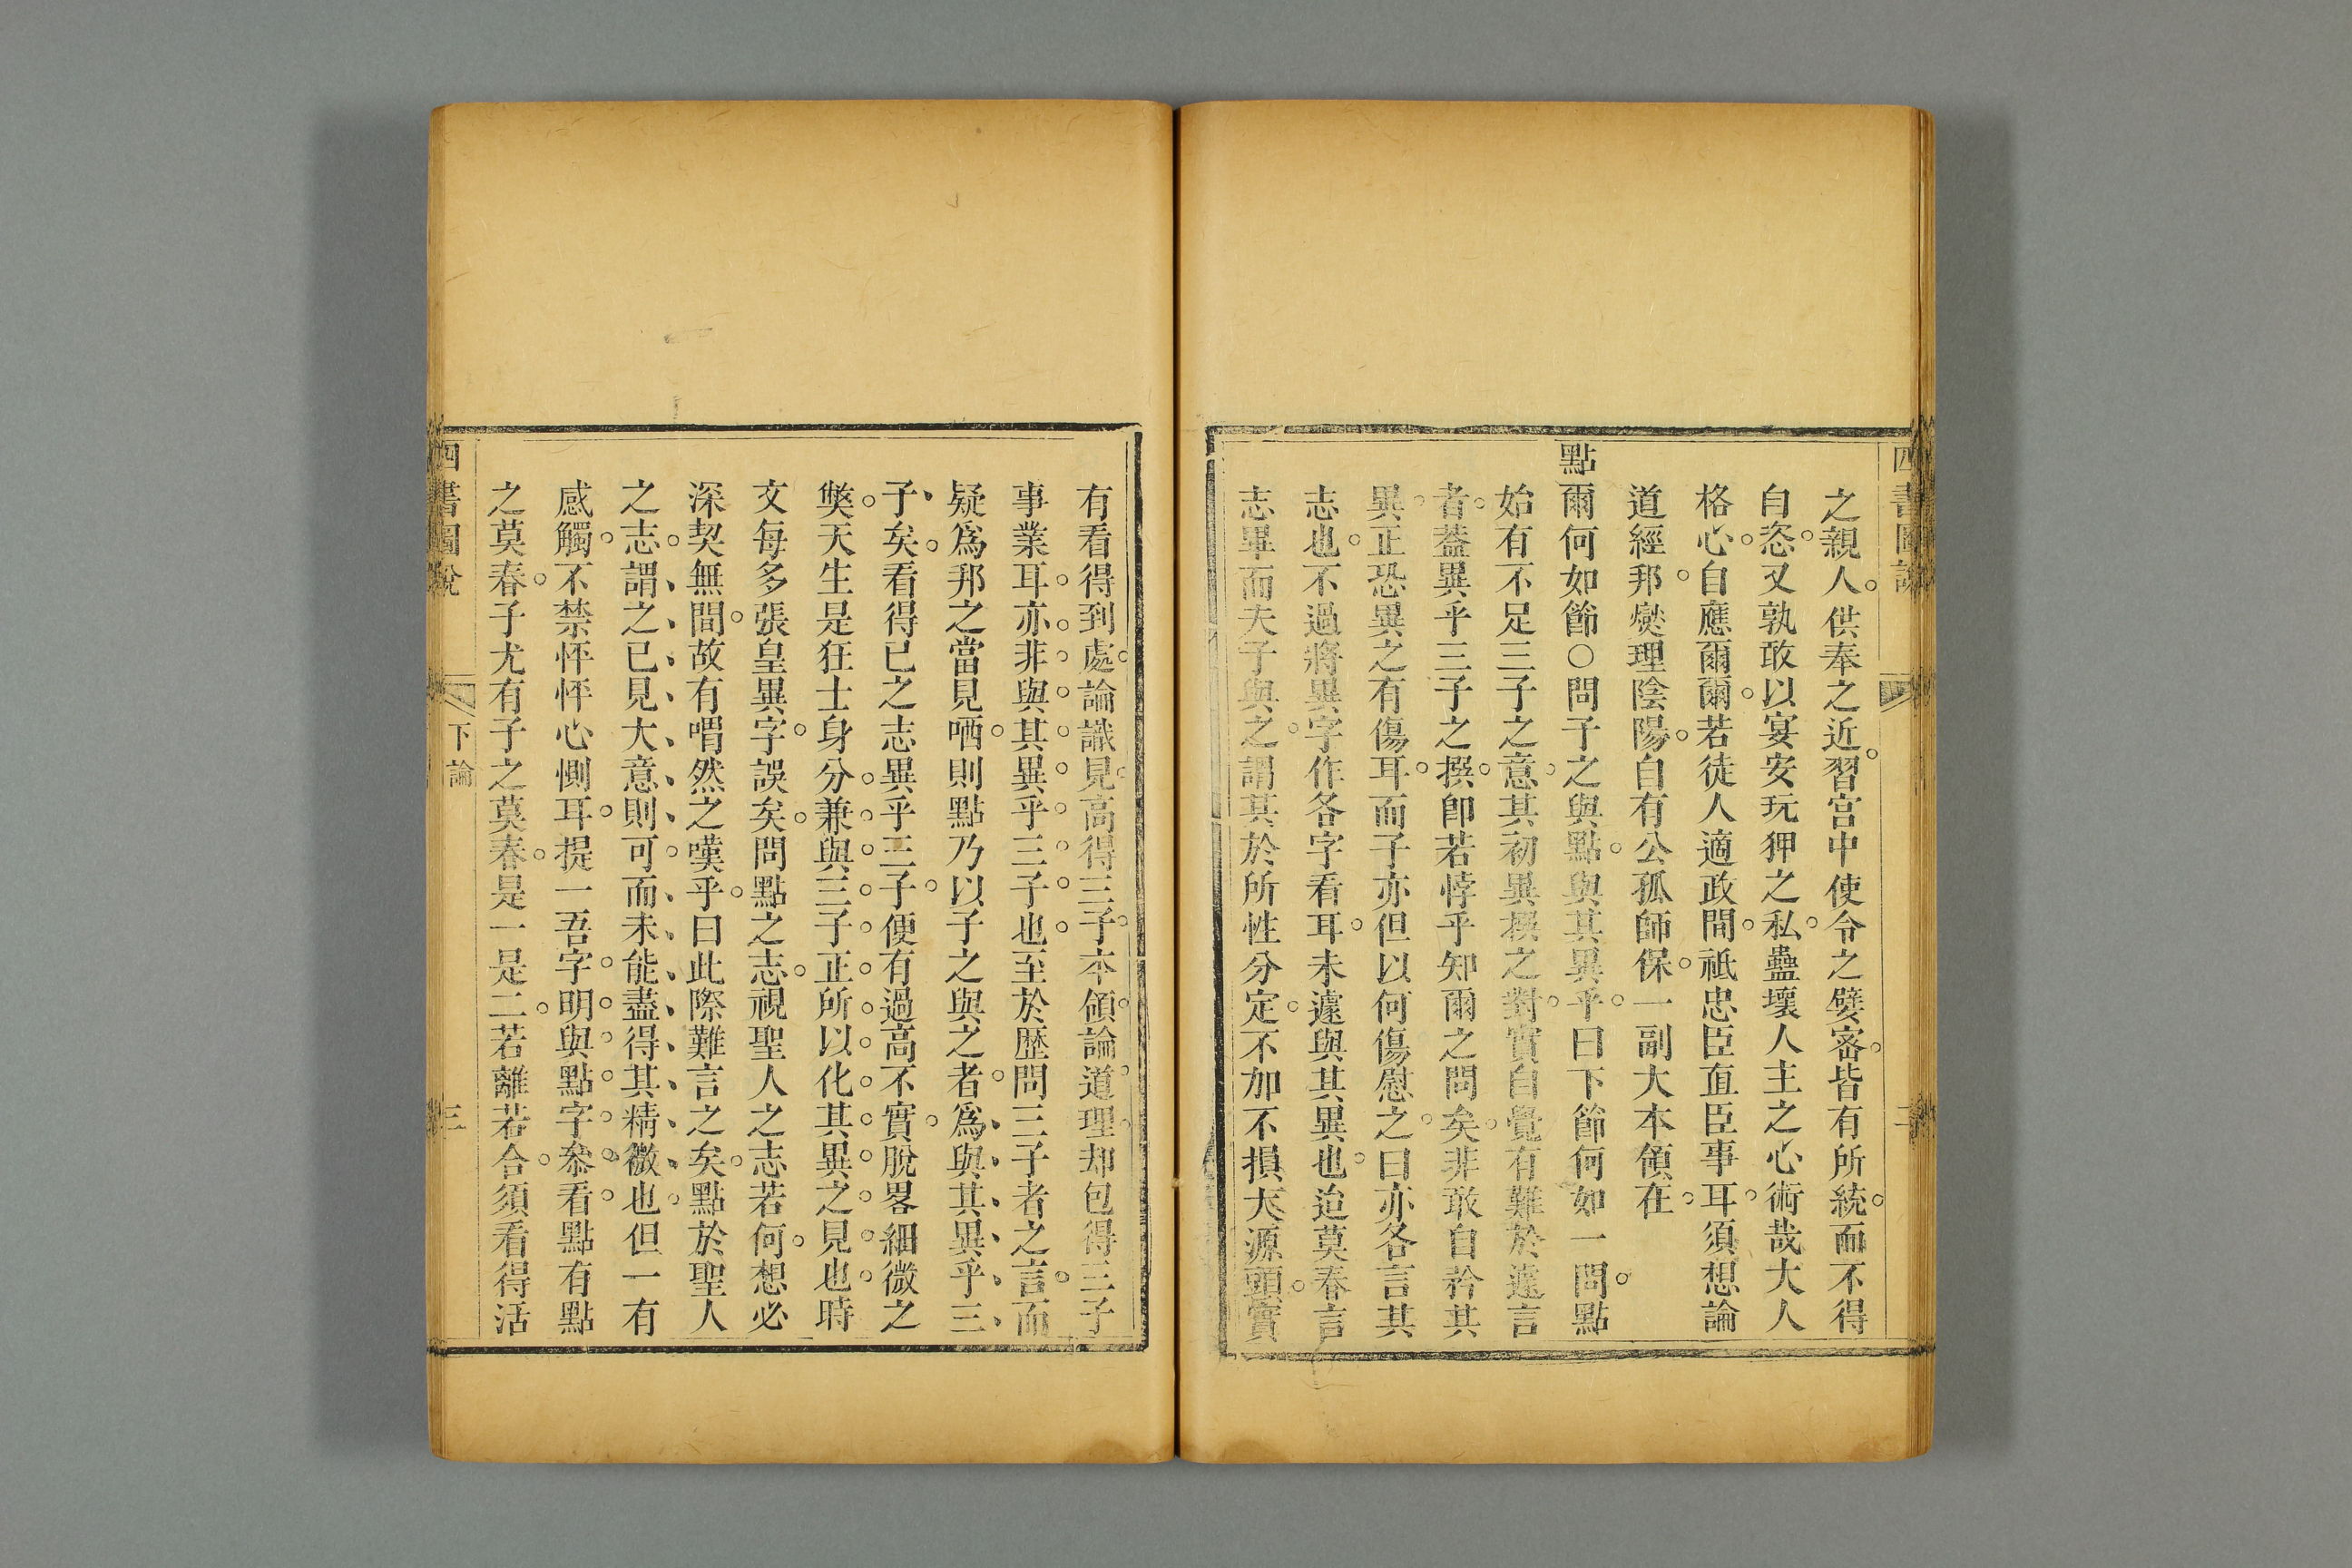 四書圖說
二
之親人供奉之近習宫中使令之嬖宻皆有所統而不得
自恣又孰敢以宴安玩狎之私蠱壞人主之心術哉大人
格心自應爾爾若徒人適政間祗忠臣直臣事耳須想論
道經邦燮理陰陽自有公孤師保一副大本領在
點爾何如節○問子之與點與其異乎曰下節何如一問點
始有不足三子之意其初異撰之對實自覺有難於遽言
者葢異乎三子之撰卽若悖乎知爾之問矣非敢自矜其
異正恐異之有傷耳而子亦但以何傷慰之曰亦各言其
志也不過將異字作各字看耳未遽與其異也迨莫春言
志畢而夫子與之謂其於所性分定不加不損大源頭實
有看得到處論識見高得三子本領論道理却包得三子
事業耳亦非與其異乎三子也至於歴問三子者之言而
疑爲邦之當見哂則點乃以子之與之者爲與其異乎三
子矣看得已之志異乎三子便有過高不實脫畧細微之
獘天生是狂士身分兼與三子正所以化其異之見也時
文每多張皇異字誤矣問點之志視聖人之志若何想必
深契無間故有喟然之嘆乎曰此際難言之矣點於聖人
之志謂之已見大意則可而未能盡得其精微也但一有
感觸不禁怦怦心惻耳提一吾字明與點字叅看點有點
之莫春子尤有子之莫春是一是二若離若合須看得活
四書圖說
下論
三